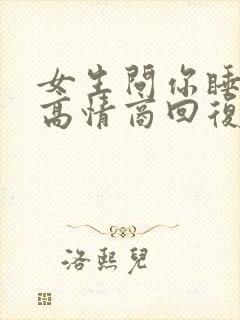 女生問你睡
高情商回復
洛熙兒